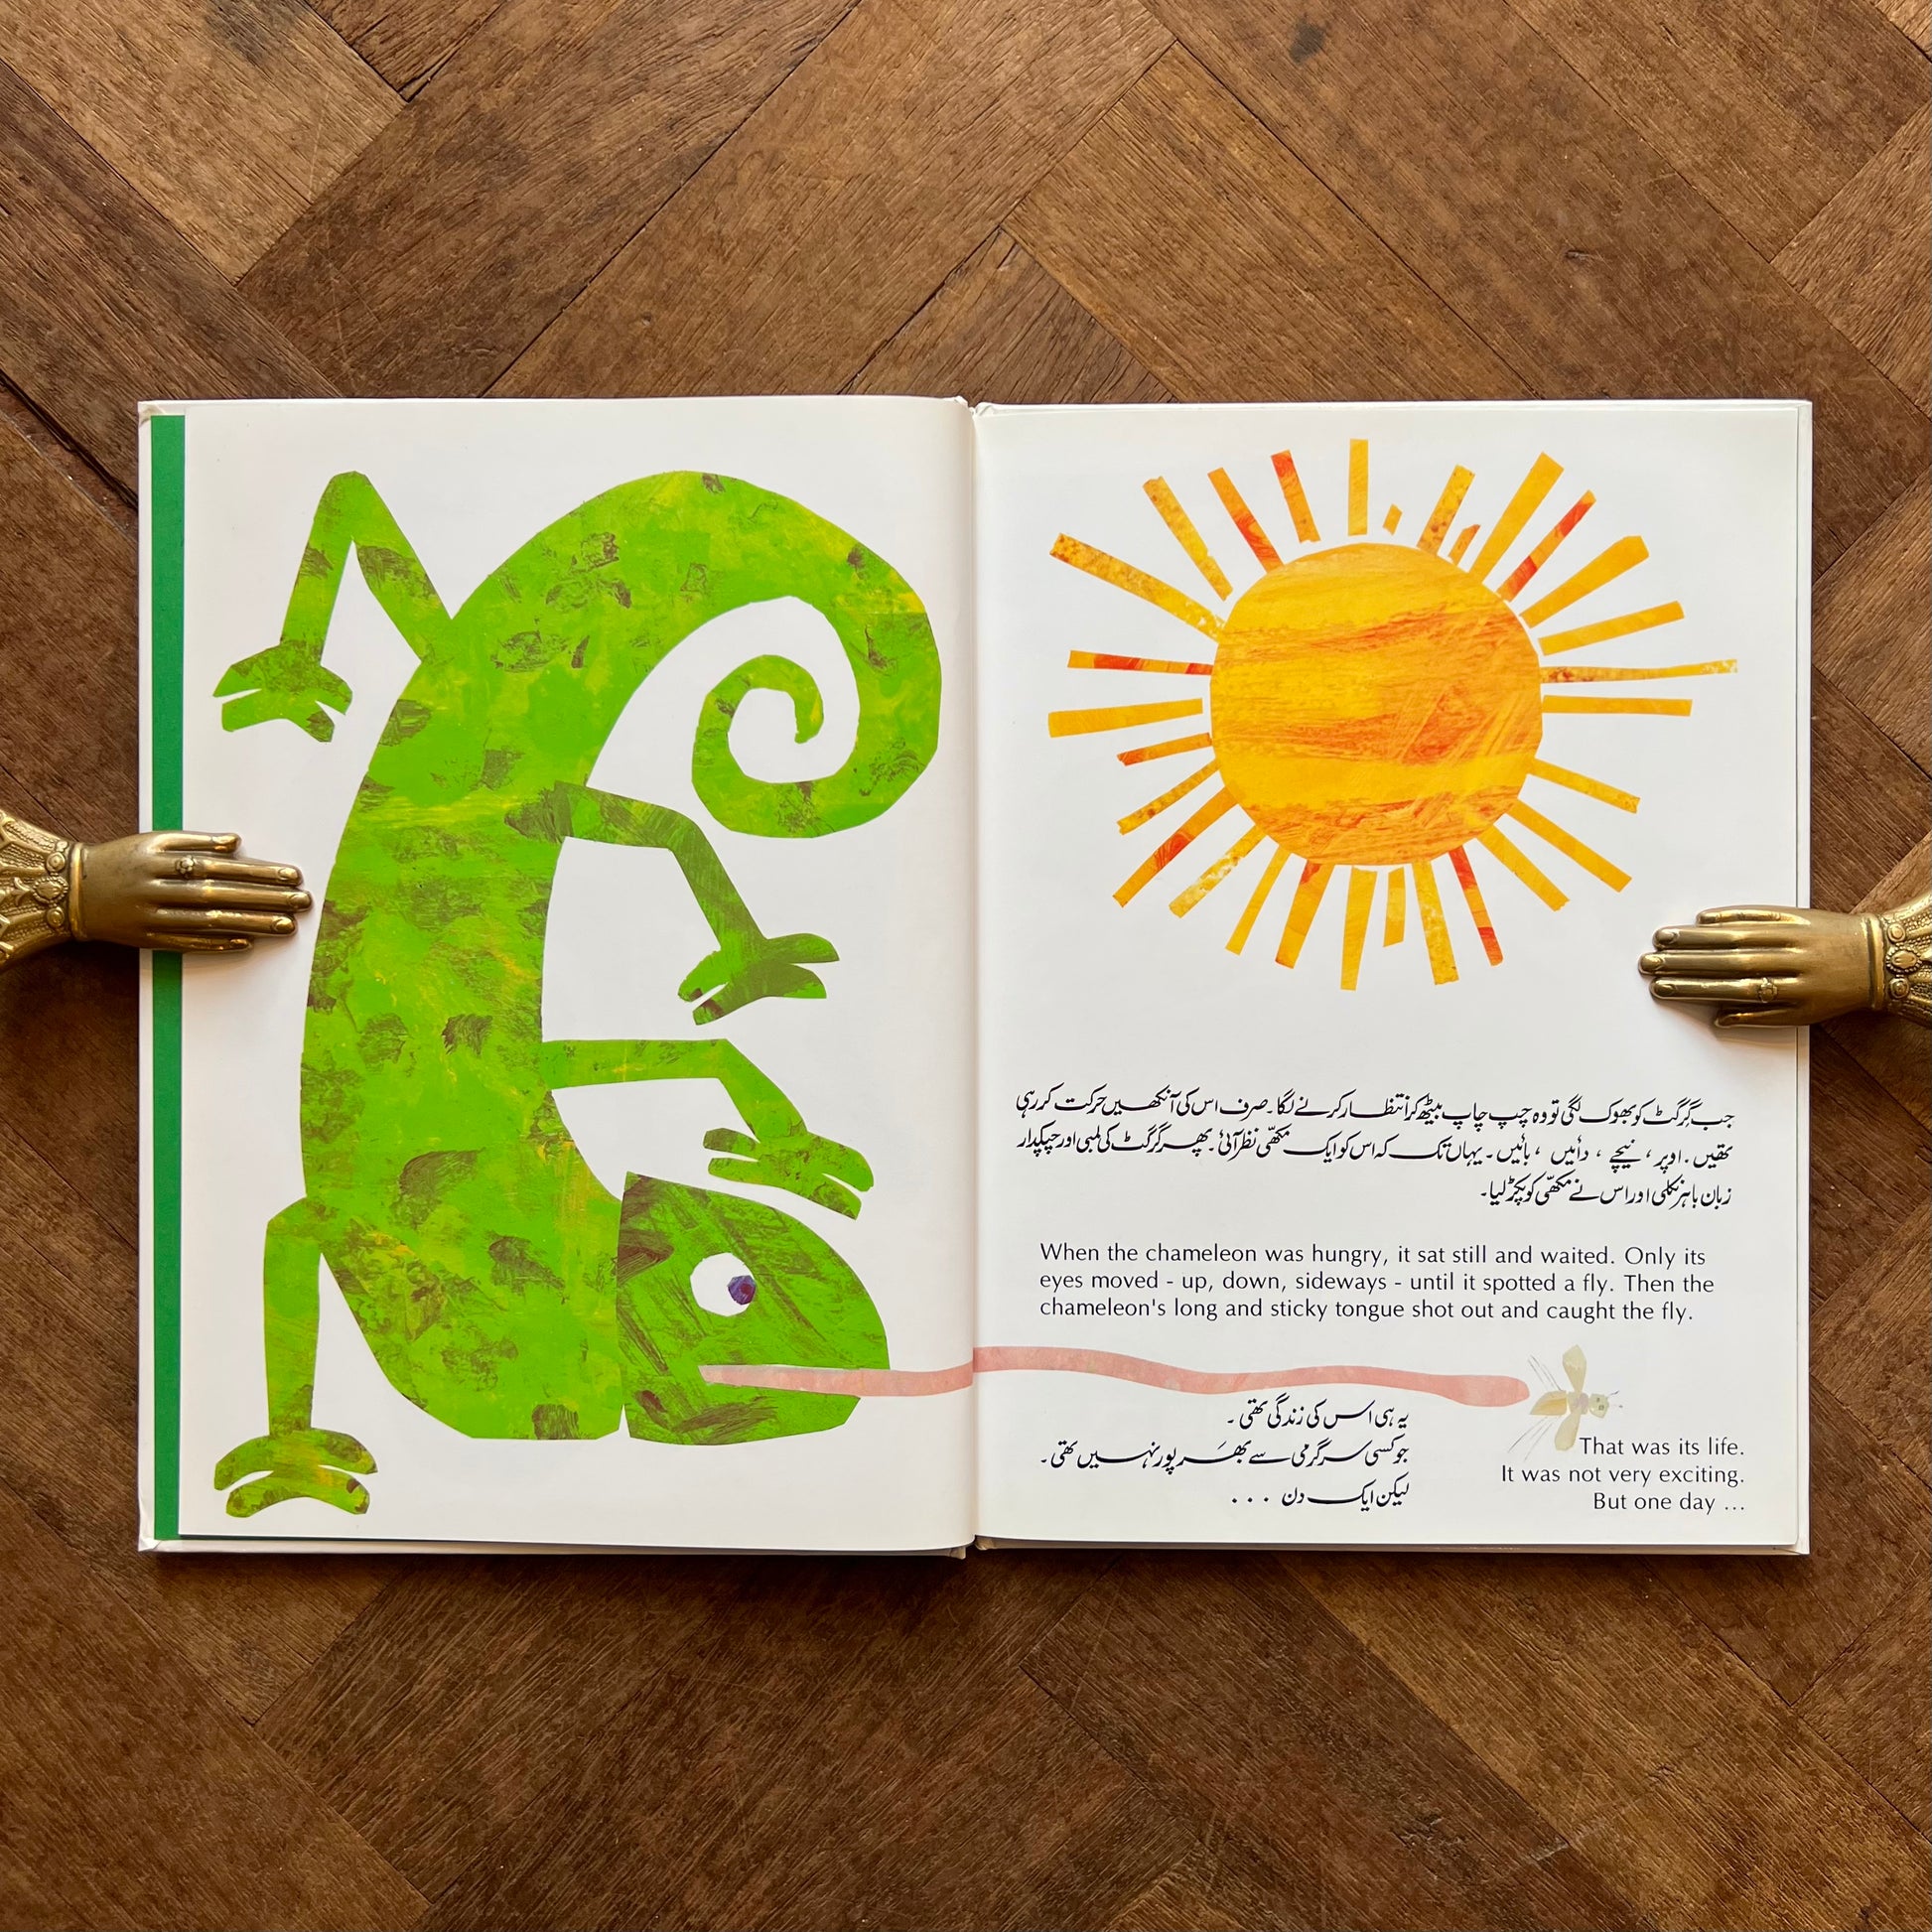 جب گرگٹ کو بھوک لگی تو وہ چپ چاپ بیٹھ کر انتظار کرنے لگا۔ صرف اس کی آنکھیں حرکت کر رہی
تھیں. اوپر ، نیچے ، دائیں ، بائیں ۔ یہاں تک کہ اس کو ایک مکھّی نظر آئی ۔ پھر گرگٹ کی لمبی اور چپکدار
زبان باہر نکلی اور اس نے مکھّی کو پکڑ لیا۔
When the chameleon was hungry, it sat still and waited. Only its
eyes moved - up, down, sideways - until it spotted a fly. Then the
chameleon's long and sticky tongue shot out and caught the fly.
یہ ہی اس کی زندگی تھی ۔
جو کسی سرگرمی سے بھَر پور نہیں تھی ۔
لیکن ایک دن . . .
That was its life.
It was not very exciting.
But one day ...